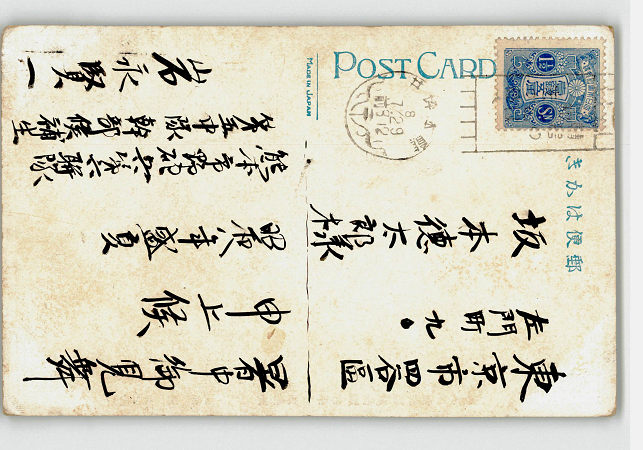 POST CARD
MADE IN JAPAN
きかは便郵
東京市四谷區
左門町九。
坂本徳太郎様
暑中御見舞
申上候
昭和八年盛夏
熊本市野砲兵第六聯隊
第五中隊 幹部候補生
岩永賢一